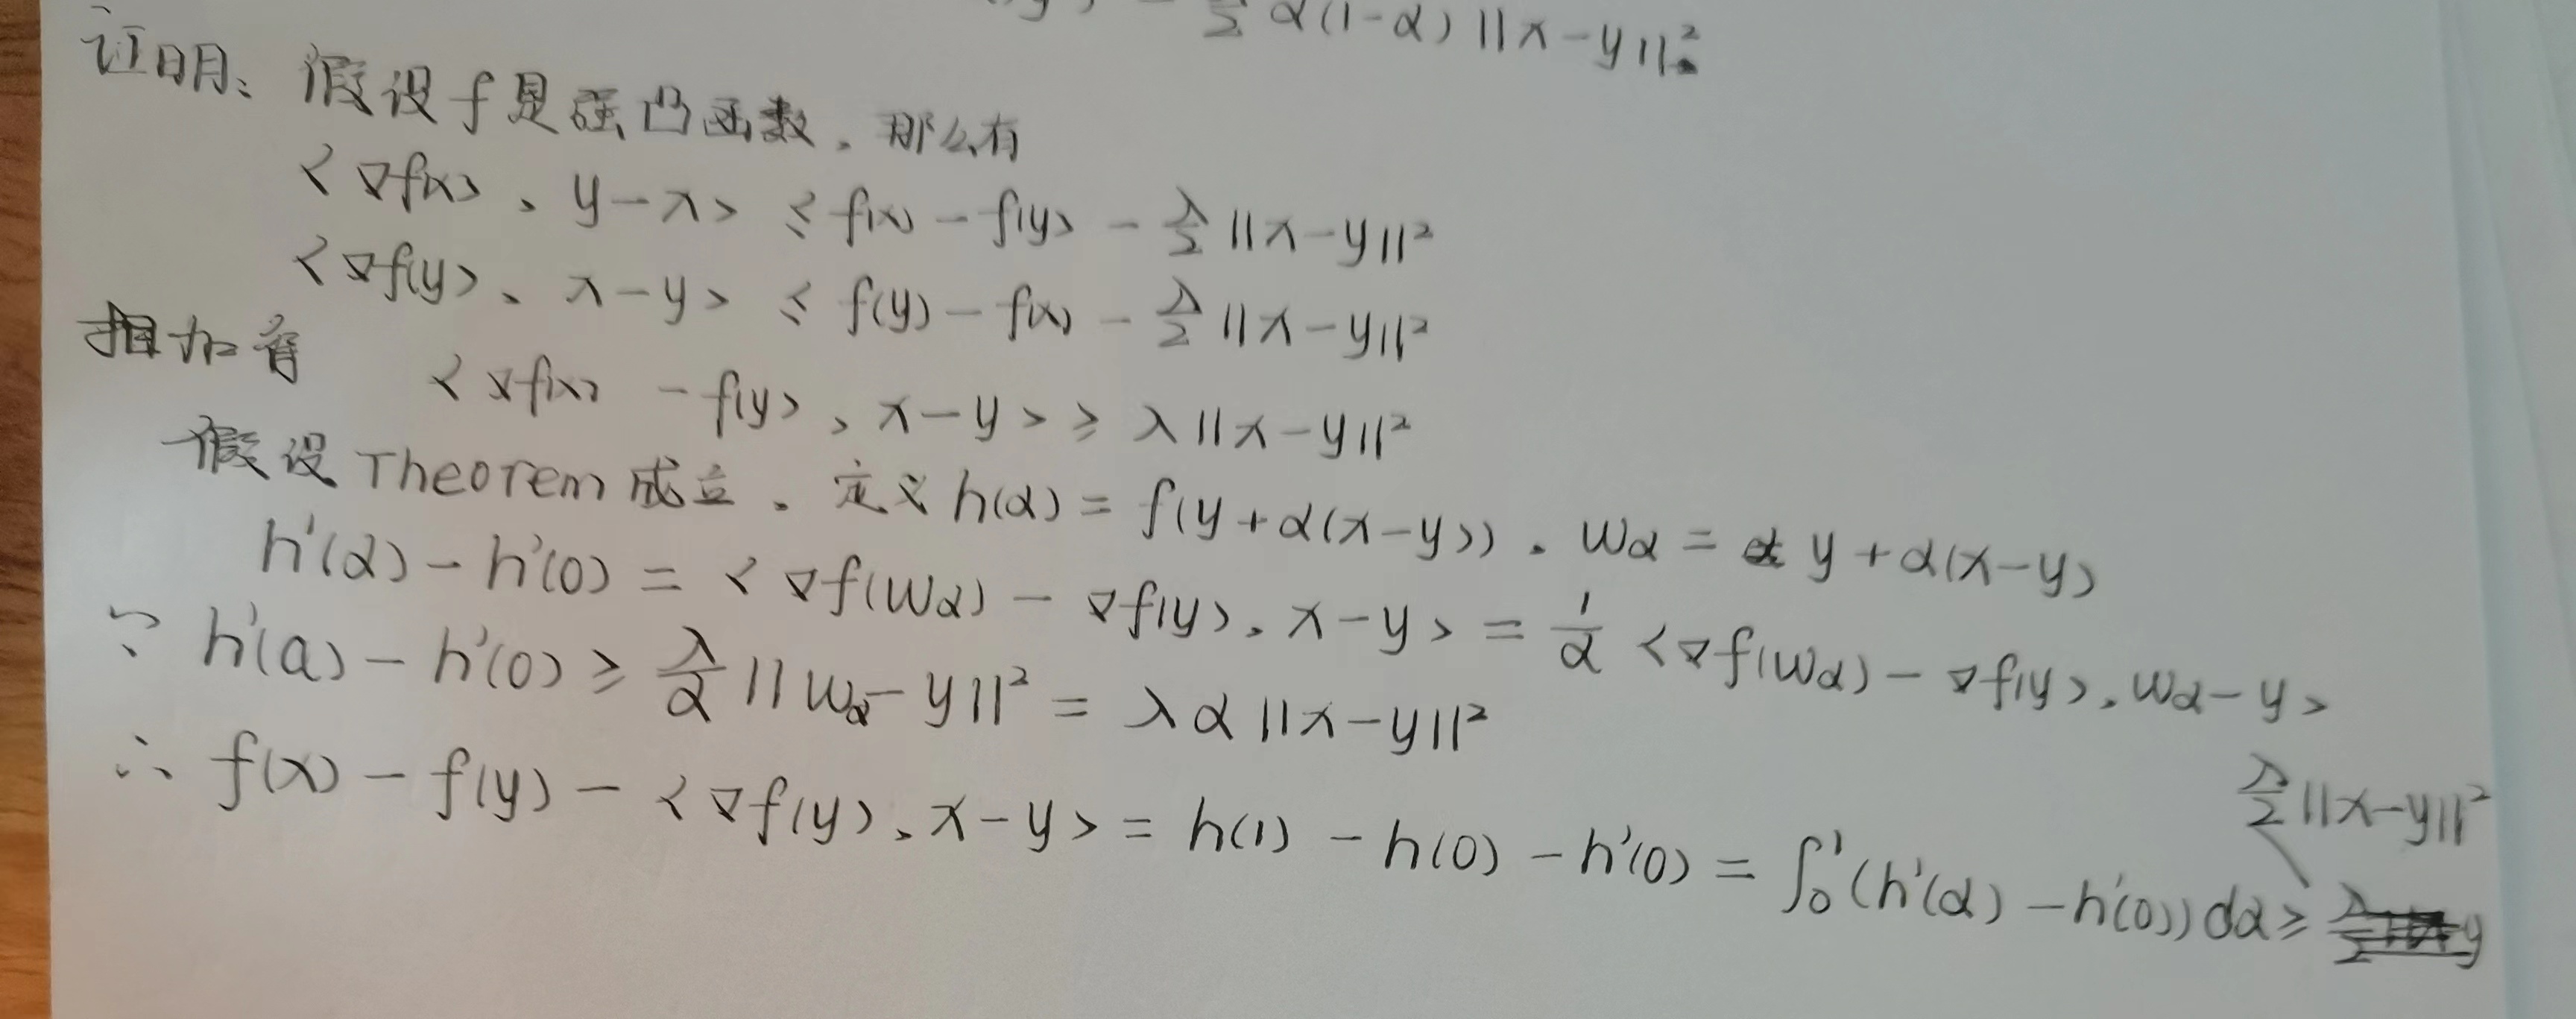 - λ/2 α(1-α) ||x-y||².
证明、假设f是强凸函数. 那么有
<∇f(x)、y-x> ≤ f(x) - f(y) - λ/2 ||x-y||²
<∇f(y)、x-y> ≤ f(y) - f(x) - λ/2 ||x-y||²
相加有 <∇f(x) - f(y), x-y> ≥ λ||x-y||²
假设Theorem成立. 定义 h(α) = f(y+α(x-y)). wα = y+α(x-y)
h'(α) - h'(0) = <∇f(wα) - ∇f(y), x-y> = 1/α <∇f(wα) - ∇f(y), wα-y>
∵ h'(a) - h'(0) ≥ λ/α ||wα-y||² = λα||x-y||²
∴ f(x) - f(y) - <∇f(y)、x-y> = h(1) - h(0) - h'(0) = ∫₀¹(h'(α) - h'(0))dα ≥ λ/2 ||x-y||²